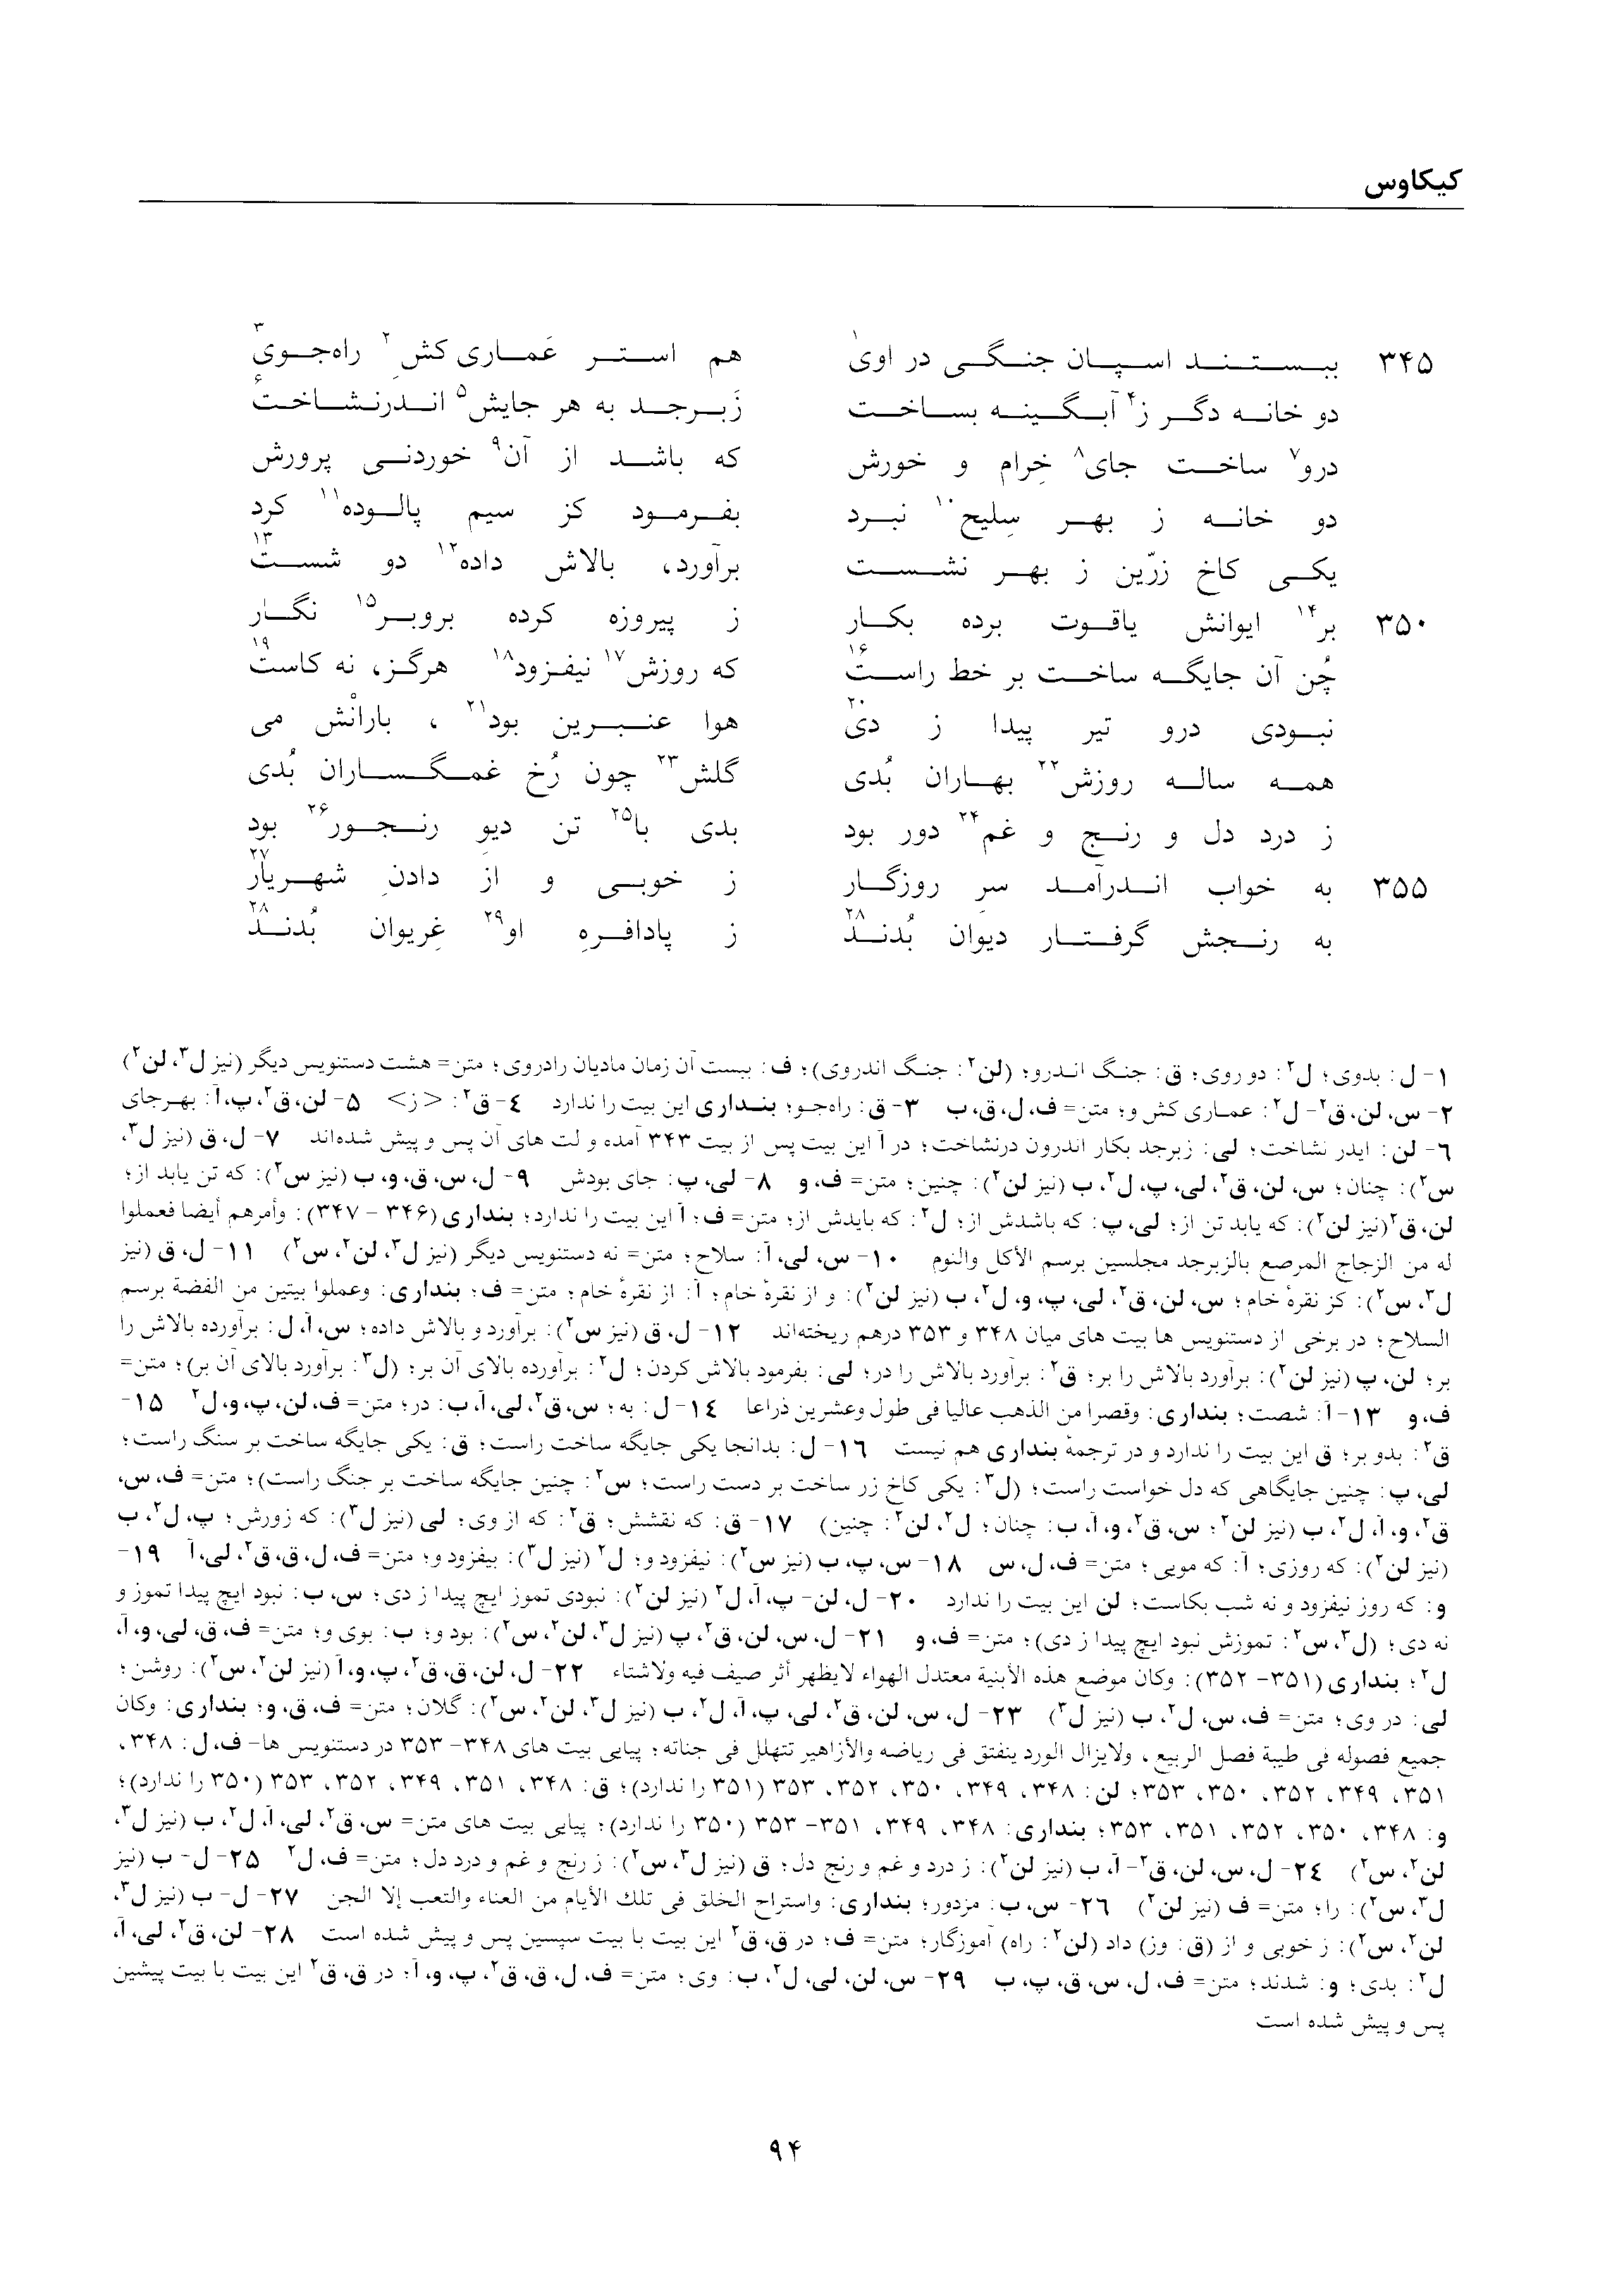 کیکاوس
۳۴۵ ببستند اسپان جنگی در اوی۱ هم استر عَماری کشِ۲ راه‌جوی۳
دو خانه دگر ز۴ آبگینه بساخت زَبرجد به هر جایش۵ اندرنشاخت۶
درو۷ ساخت جای۸ خِرام و خورش که باشد از آن۹ خوردنی پرورش
دو خانه ز بهر سِلیح۱۰ نبرد بفرمود کز سیم پالوده۱۱ کرد
یکی کاخ زرّین ز بهر نشست برآورد، بالاش داده۱۲ دو شست۱۳
۳۵۰ بر۱۴ ایوانش یاقوت برده بکار ز پیروزه کرده بروبر۱۵ نگار
چُن آن جایگه ساخت بر خط راست۱۶ که روزش۱۷ نیفزود۱۸ هرگز، نه کاست۱۹
نبودی درو تیر پیدا ز دی۲۰ هوا عنبرین بود۲۱، بارانْش می
همه ساله روزش۲۲ بهاران بُدی گلش۲۳ چون رُخ غمگساران بُدی
ز درد دل و رنج و غم۲۴ دور بود بدی با۲۵ تن دیوِ رنجور۲۶ بود
۳۵۵ به خواب اندرآمد سرِ روزگار ز خوبی و از دادنِ شهریار۲۷
به رنجش گرفتار دیوان بُدند۲۸ ز پادافرهِ او۲۹ غِریوان بُدند۲۸
۱- ل: بدوی؛ ل۲: دو روی؛ ق: جنگ اندرو؛ (لن۲: جنگ اندروی)؛ ف: ببست آن زمان مادیان رادروی؛ متن= هشت دستنویس دیگر (نیز ل۳، لن۲)
۲- س، لن، ق۲- ل۲: عماری کش و؛ متن= ف، ل، ق، ب ۳- ق: راه‌جو؛ بنداری این بیت را ندارد ۴- ق۲: <ز> ۵- لن، ق۲، پ، آ: بهرجای
۶- لن: ایدر نشاخت؛ لی: زبرجد بکار اندرون درنشاخت؛ در آ این بیت پس از بیت ۳۴۳ آمده و لت های آن پس و پیش شده‌اند ۷- ل، ق (نیز ل۳،
س۲): چنان؛ س، لن، ق۲، لی، پ، ل۲، ب (نیز لن۲): چنین؛ متن= ف، و ۸- لی، پ: جای بودش ۹- ل، س، ق، و، ب (نیز س۲): که تن یابد از؛
لن، ق۲(نیز لن۲): که یابد تن از؛ لی، پ: که باشدش از؛ ل۲: که بایدش از؛ متن= ف؛ آ این بیت را ندارد؛ بنداری (۳۴۶ - ۳۴۷): وأمرهم أیضا فعملوا
له من الزجاج المرصع بالزبرجد مجلسین برسم الأکل والنوم ۱۰- س، لی، آ: سلاح؛ متن= نه دستنویس دیگر (نیز ل۳، لن۲، س۲) ۱۱- ل، ق (نیز
ل۳، س۲): کز نقرهٔ خام؛ س، لن، ق۲، لی، پ، و، ل۲، ب (نیز لن۲): و از نقرهٔ خام؛ آ: از نقرهٔ خام؛ متن= ف؛ بنداری: وعملوا بیتین من الفضة برسم
السلاح؛ در برخی از دستنویس ها بیت های میان ۳۴۸ و ۳۵۳ درهم ریخته‌اند ۱۲- ل، ق (نیز س۲): برآورد و بالاش داده؛ س، آ، ل: برآورده بالاش را
بر؛ لن، پ (نیز لن۲): برآورد بالاش را بر؛ ق۲: برآورد بالاش را در؛ لی: بفرمود بالاش کردن؛ ل۲: برآورده بالای آن بر؛ (ل۳: برآورد بالای آن بر)؛ متن=
ف، و ۱۳- آ: شصت؛ بنداری: وقصرا من الذهب عالیا فی طول وعشرین ذراعا ۱۴- ل: به؛ س، ق۲، لی، آ، ب: در؛ متن= ف، لن، پ، و، ل۲ ۱۵-
ق۲: بدو بر؛ ق این بیت را ندارد و در ترجمهٔ بنداری هم نیست ۱۶- ل: بدانجا یکی جایگه ساخت راست؛ ق: یکی جایگه ساخت بر سنگ راست؛
لی، پ: چنین جایگاهی که دل خواست راست؛ (ل۳: یکی کاخ زر ساخت بر دست راست؛ س۲: چنین جایگه ساخت بر جنگ راست)؛ متن= ف، س،
ق۲، و، آ، ل۲، ب (نیز لن۲؛ س، ق۲، و، آ، ب: چنان؛ ل۲، لن۲: چنین) ۱۷- ق: که نقشش؛ ق۲: که از وی؛ لی (نیز ل۳): که زورش؛ پ، ل۲، ب
(نیز لن۲): که روزی؛ آ: که مویی؛ متن= ف، ل، س ۱۸- س، پ، ب (نیز س۲): نیفزود و؛ ل۲ (نیز ل۳): بیفزود و؛ متن= ف، ل، ق، ق۲، لی، آ ۱۹-
و: که روز نیفزود و نه شب بکاست؛ لن این بیت را ندارد ۲۰- ل، لن- پ، آ، ل۲ (نیز لن۲): نبودی تموز ایچ پیدا ز دی؛ س، ب: نبود ایچ پیدا تموز و
نه دی؛ (ل۳، س۲: تموزش نبود ایچ پیدا ز دی)؛ متن= ف، و ۲۱- ل، س، لن، ق۲، پ (نیز ل۳، لن۲، س۲): بود و؛ ب: بوی و؛ متن= ف، ق، لی، و، آ،
ل۲؛ بنداری (۳۵۱- ۳۵۲): وکان موضع هذه الأبنیة معتدل الهواء لایظهر أثر صیف فیه ولاشتاء ۲۲- ل، لن، ق، ق۲، پ، و، آ (نیز لن۲، س۲): روشن؛
لی: در وی؛ متن= ف، س، ل۲، ب (نیز ل۳) ۲۳- ل، س، لن، ق۲، لی، پ، آ، ل۲، ب (نیز ل۳، لن۲، س۲): گلان؛ متن= ف، ق، و؛ بنداری: وکان
جمیع فصوله فی طیبة فصل الربیع، ولایزال الورد ینفتق فی ریاضه والأزاهیر تتهلل فی جناته؛ پیاپی بیت های ۳۴۸- ۳۵۳ در دستنویس ها- ف، ل: ۳۴۸،
۳۵۱، ۳۴۹، ۳۵۲، ۳۵۰، ۳۵۳؛ لن: ۳۴۸، ۳۴۹، ۳۵۰، ۳۵۲، ۳۵۳ (۳۵۱ را ندارد)؛ ق: ۳۴۸، ۳۵۱، ۳۴۹، ۳۵۲، ۳۵۳ (۳۵۰ را ندارد)؛
و: ۳۴۸، ۳۵۰، ۳۵۲، ۳۵۱، ۳۵۳؛ بنداری: ۳۴۸، ۳۴۹، ۳۵۱- ۳۵۳ (۳۵۰ را ندارد)؛ پیاپی بیت های متن= س، ق۲، لی، آ، ل۲، ب (نیز ل۳،
لن۲، س۲) ۲۴- ل، س، لن، ق۲- آ، ب (نیز لن۲): ز درد و غم و رنج دل؛ ق (نیز ل۳، س۲): ز رنج و غم و درد دل؛ متن= ف، ل۲ ۲۵- ل- ب (نیز
ل۳، س۲): را؛ متن= ف (نیز لن۲) ۲۶- س، ب: مزدور؛ بنداری: واستراح الخلق فی تلك الأیام من العناء والتعب إلا الجن ۲۷- ل- ب (نیز ل۳،
لن۲، س۲): ز خوبی و از (ق: وز) داد (لن۲: راه) آموزگار؛ متن= ف؛ در ق، ق۲ این بیت با بیت سپسین پس و پیش شده است ۲۸- لن، ق۲، لی، آ،
ل۲: بدی؛ و: شدند؛ متن= ف، ل، س، ق، پ، ب ۲۹- س، لن، لی، ل۲، ب: وی؛ متن= ف، ل، ق، ق۲، پ، و، آ؛ در ق، ق۲ این بیت با بیت پیشین
پس و پیش شده است
۹۴